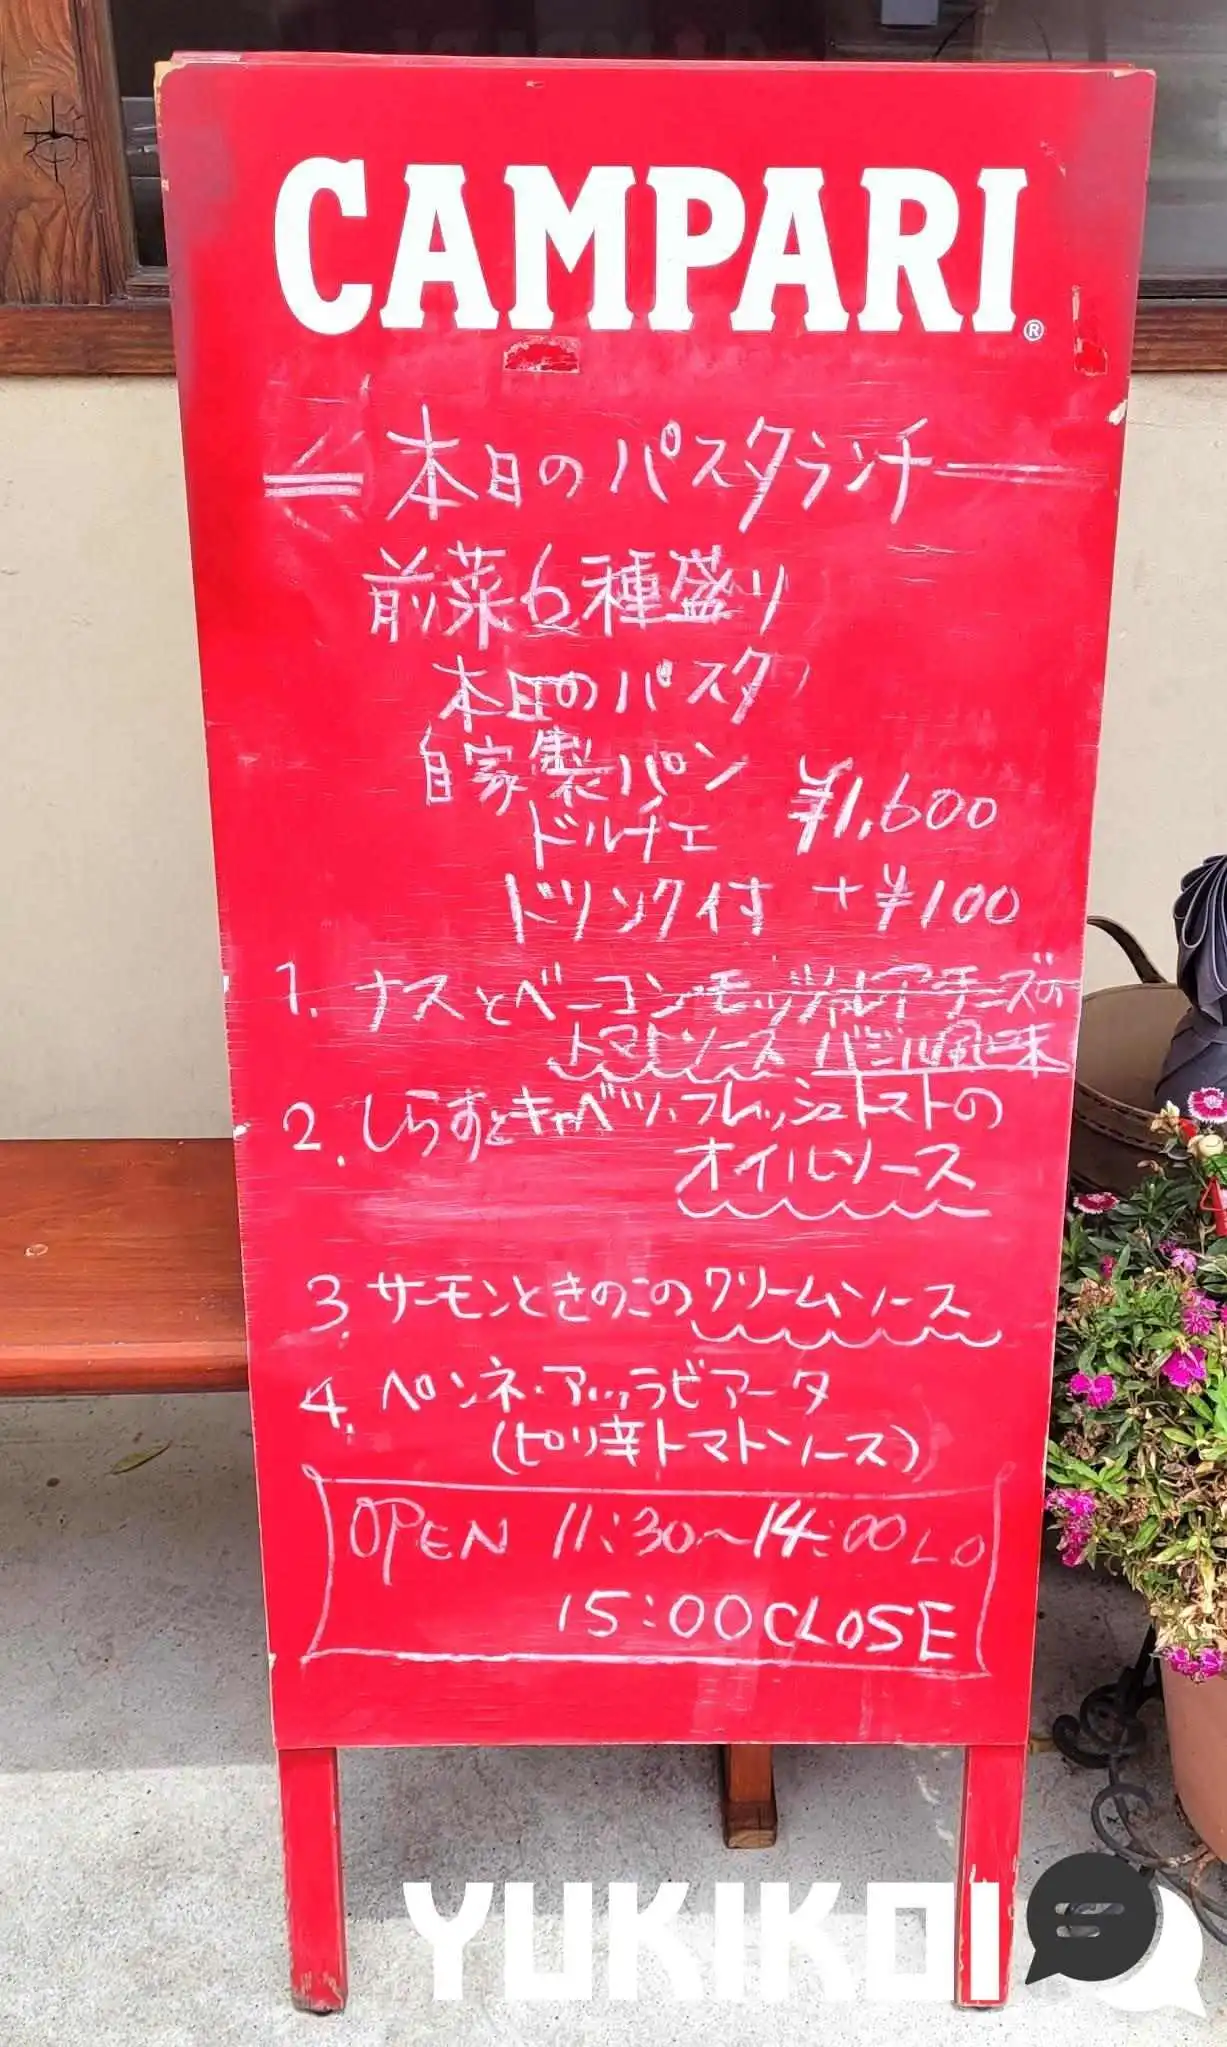 CAMPARI®
本日のパスタランチ
前菜6種盛り
本日のパスタ
自家製パン
ドルチェ ¥1,600
ドリンク付 +¥100
1. ナスとベーコン モッツァレラチーズの
トマトソース バジル風味
2. しらすとキャベツ・フレッシュトマトの
オイルソース
3. サーモンときのこのクリームソース
4. ペンネ・アッラビアータ
(ピリ辛トマトソース)
OPEN 11:30~14:00 LO
15:00 CLOSE
YUKIKOI